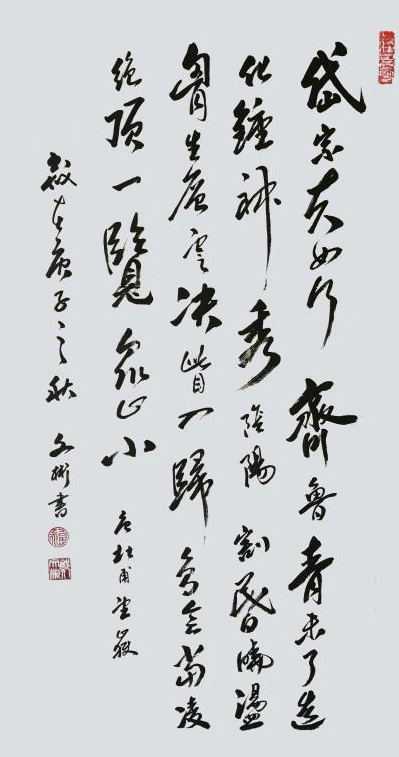 岱宗夫如何齊魯青未了造
化鍾神秀陰陽割昏曉盪
胷生層雲決眥入歸鳥會當凌
絕頂一覽眾山小 唐杜甫望嶽
歲在庚子之秋 文彬書